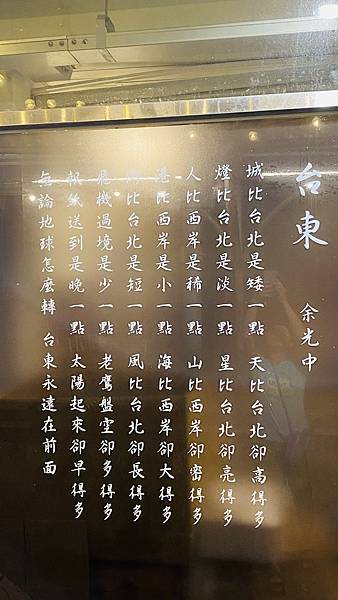 台東 余光中
城比台北是矮一點 天比台北卻高得多
燈比台北是淡一點 星比台北卻亮得多
人比西岸是稀一點 山比西岸卻密得多
港比西岸是小一點 海比西岸卻大得多
街比台北是短一點 風比台北卻長得多
飛機過境是少一點 老鷹盤空卻多得多
報紙送到是晚一點 太陽起來卻早得多
無論地球怎麼轉 台東永遠在前面